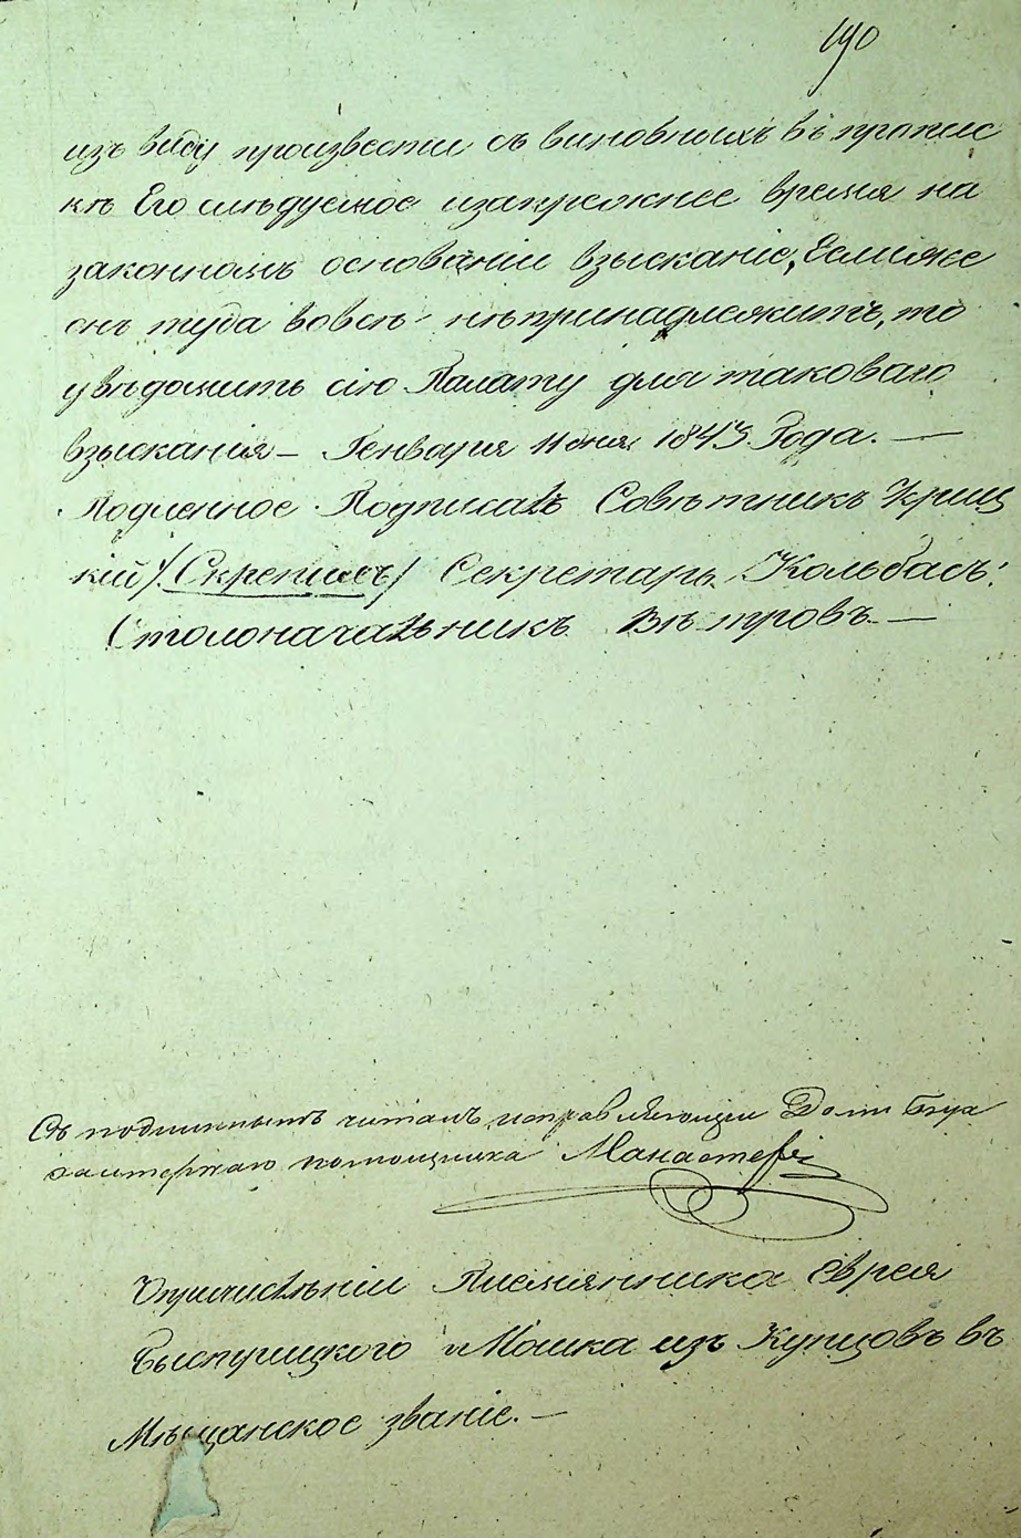 190
изъ виду произвести съ виновныхъ въ пропис
кѣ Его слѣдуемое изапрежнее время на
законномъ основаніи взысканіе, Еслиже
онъ туда вовсѣ нѣпринадлежитъ, то
увѣдомить сію Палату для таковаго
взысканія — Генваря 11 дня 1843 Года. —
Подленное Подписалъ Совѣтникъ Криц
кій /Скрепилъ/ Секретарь Кольбасъ:
Столоначальникъ Вѣтровъ. —
Съ подлиннымъ читалъ исправляющии Долж
помощника
Опричислѣніи Племянника Еврея
Быспущцкого Мошка изъ Купцовъ въ
Мѣщанское званіе. —